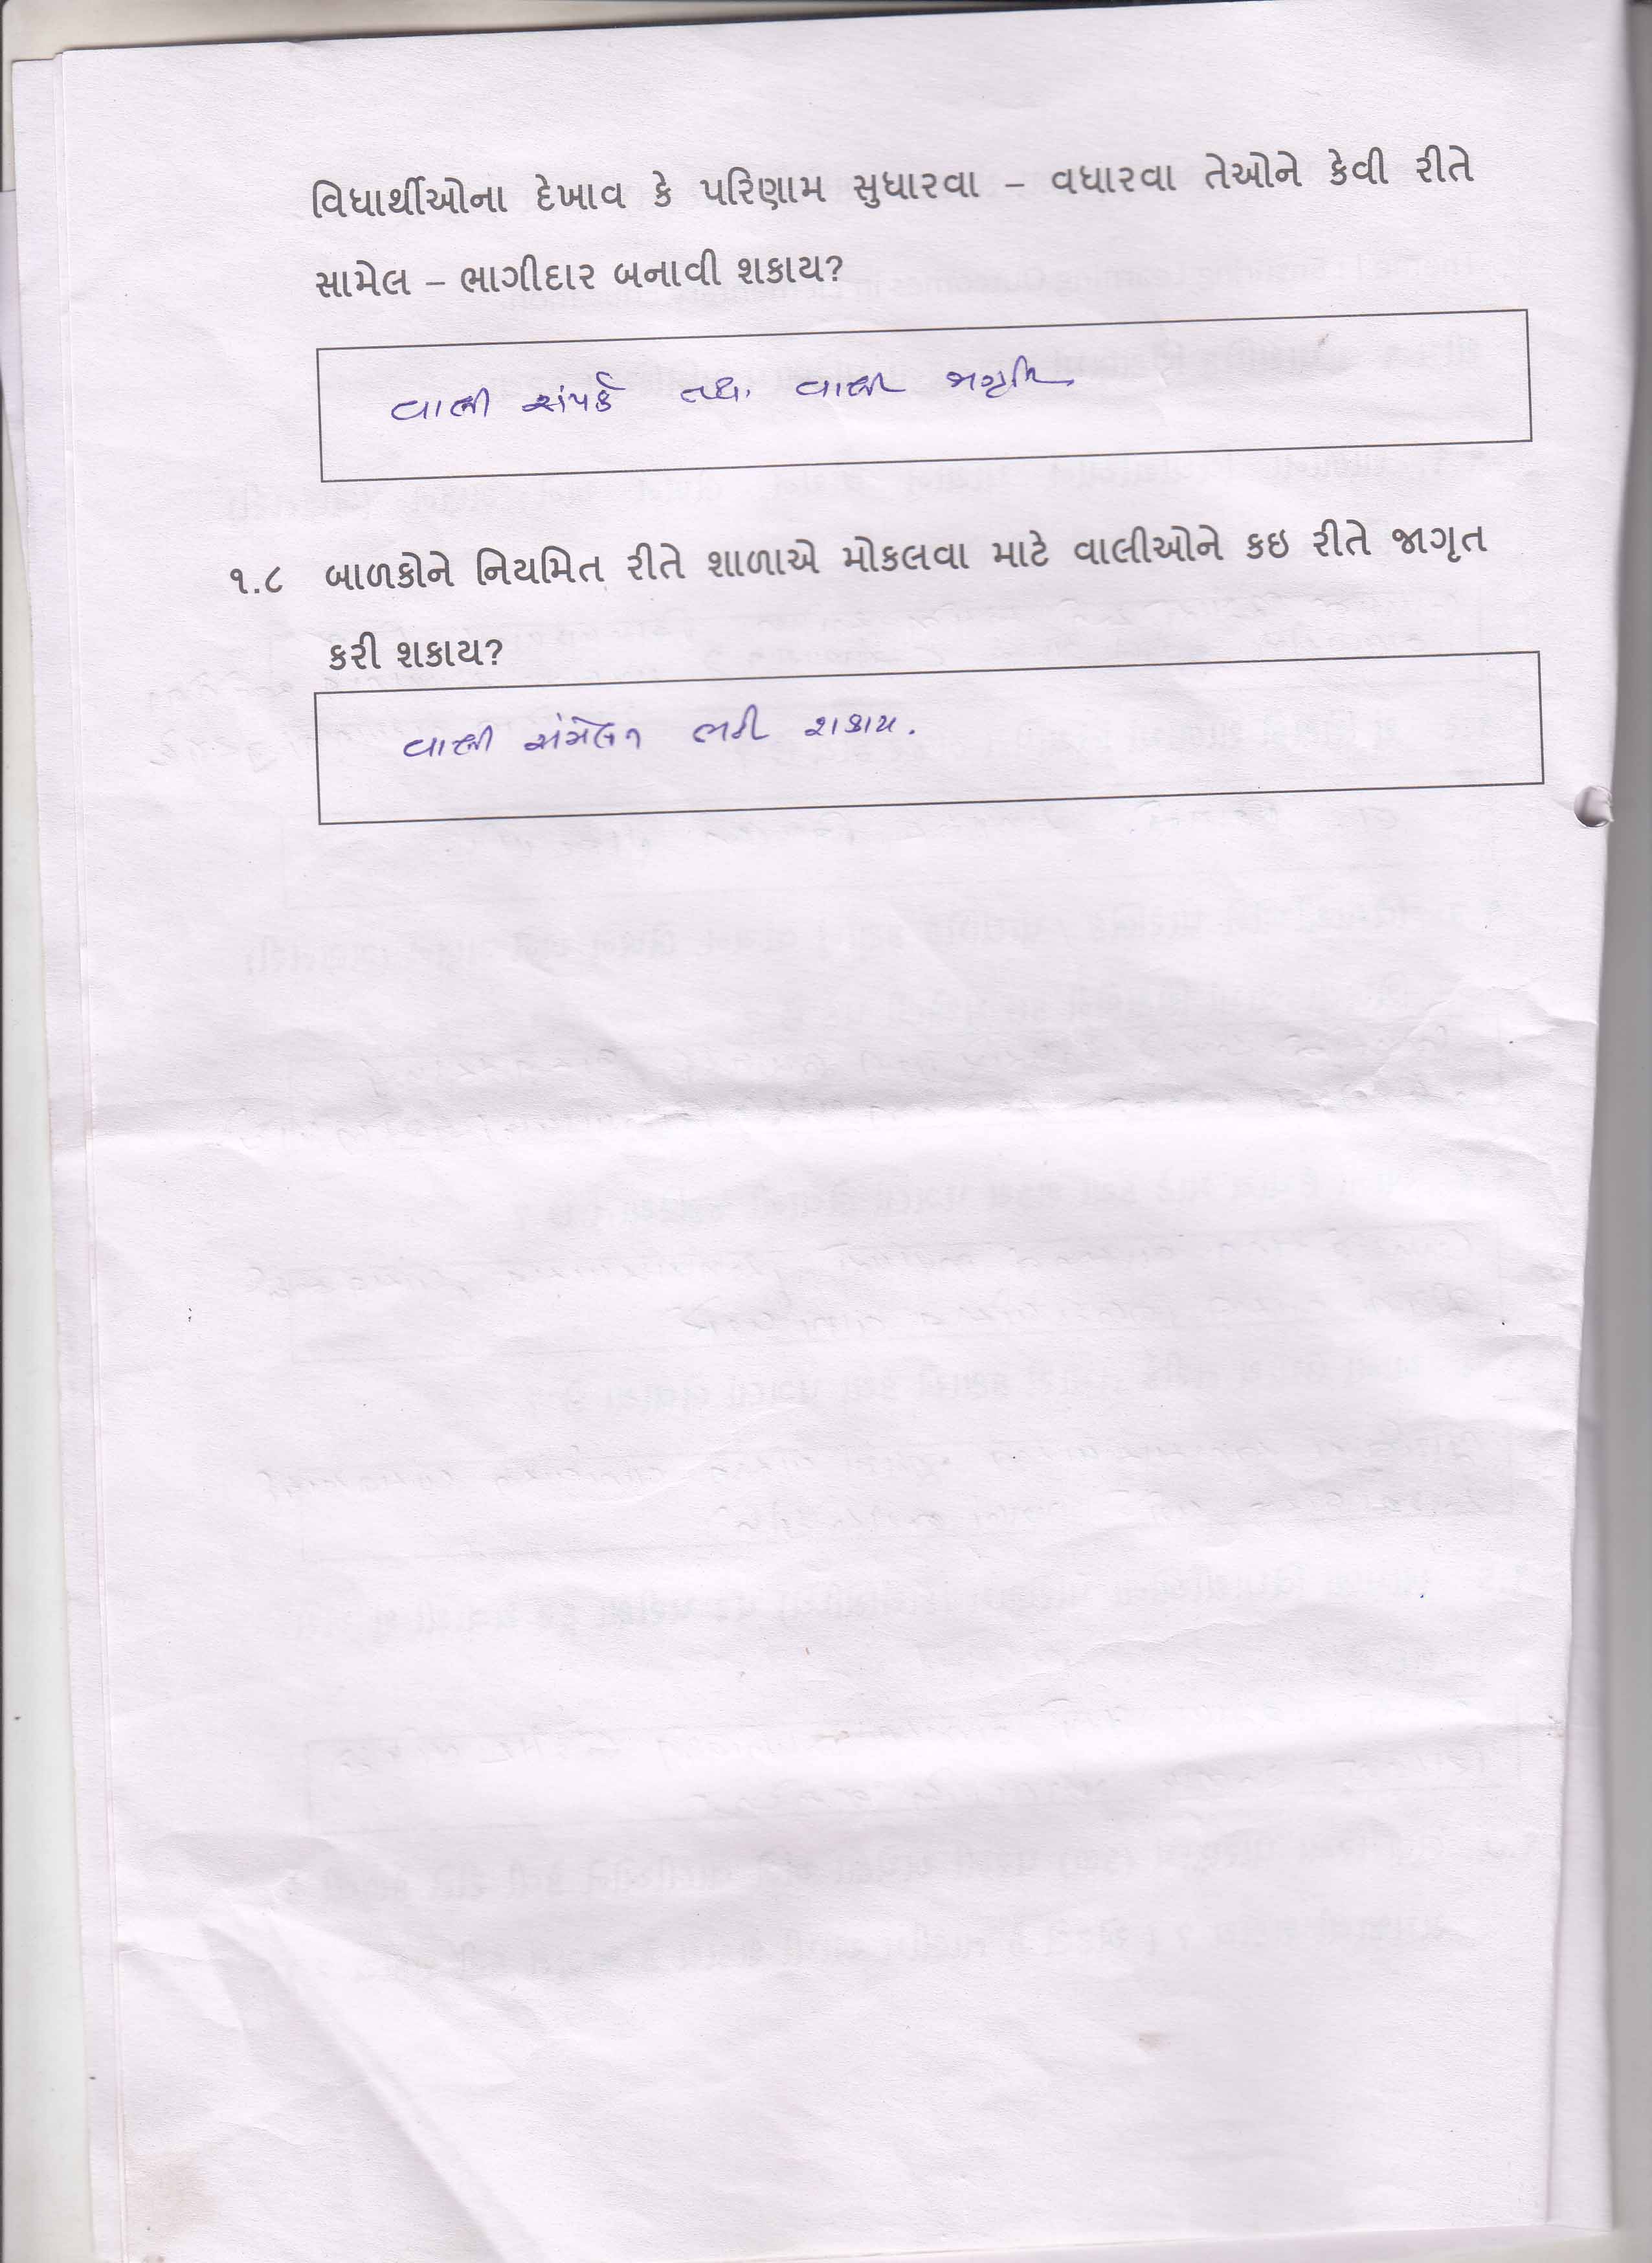 વિધાર્થીઓના દેખાવ કે પરિણામ સુધારવા – વધારવા તેઓને કેવી રીતે
સામેલ – ભાગીદાર બનાવી શકાય?
વાલી સંપર્ક તથા વાલી જાગૃતિ
૧.૮ બાળકોને નિયમિત રીતે શાળાએ મોકલવા માટે વાલીઓને કઇ રીતે જાગૃત
કરી શકાય?
વાલી સંમેલન ભરી શકાય.